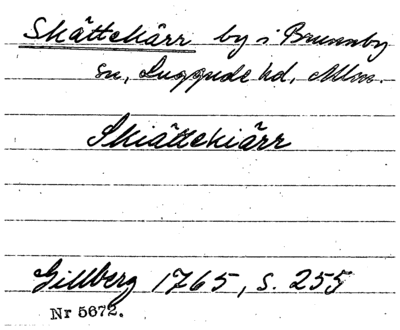 Skättekärr by i Brunnby
sn, Luggude hd, Mlm.
Skiättekiärr
Gillberg 1765, s. 255
Nr 5672.